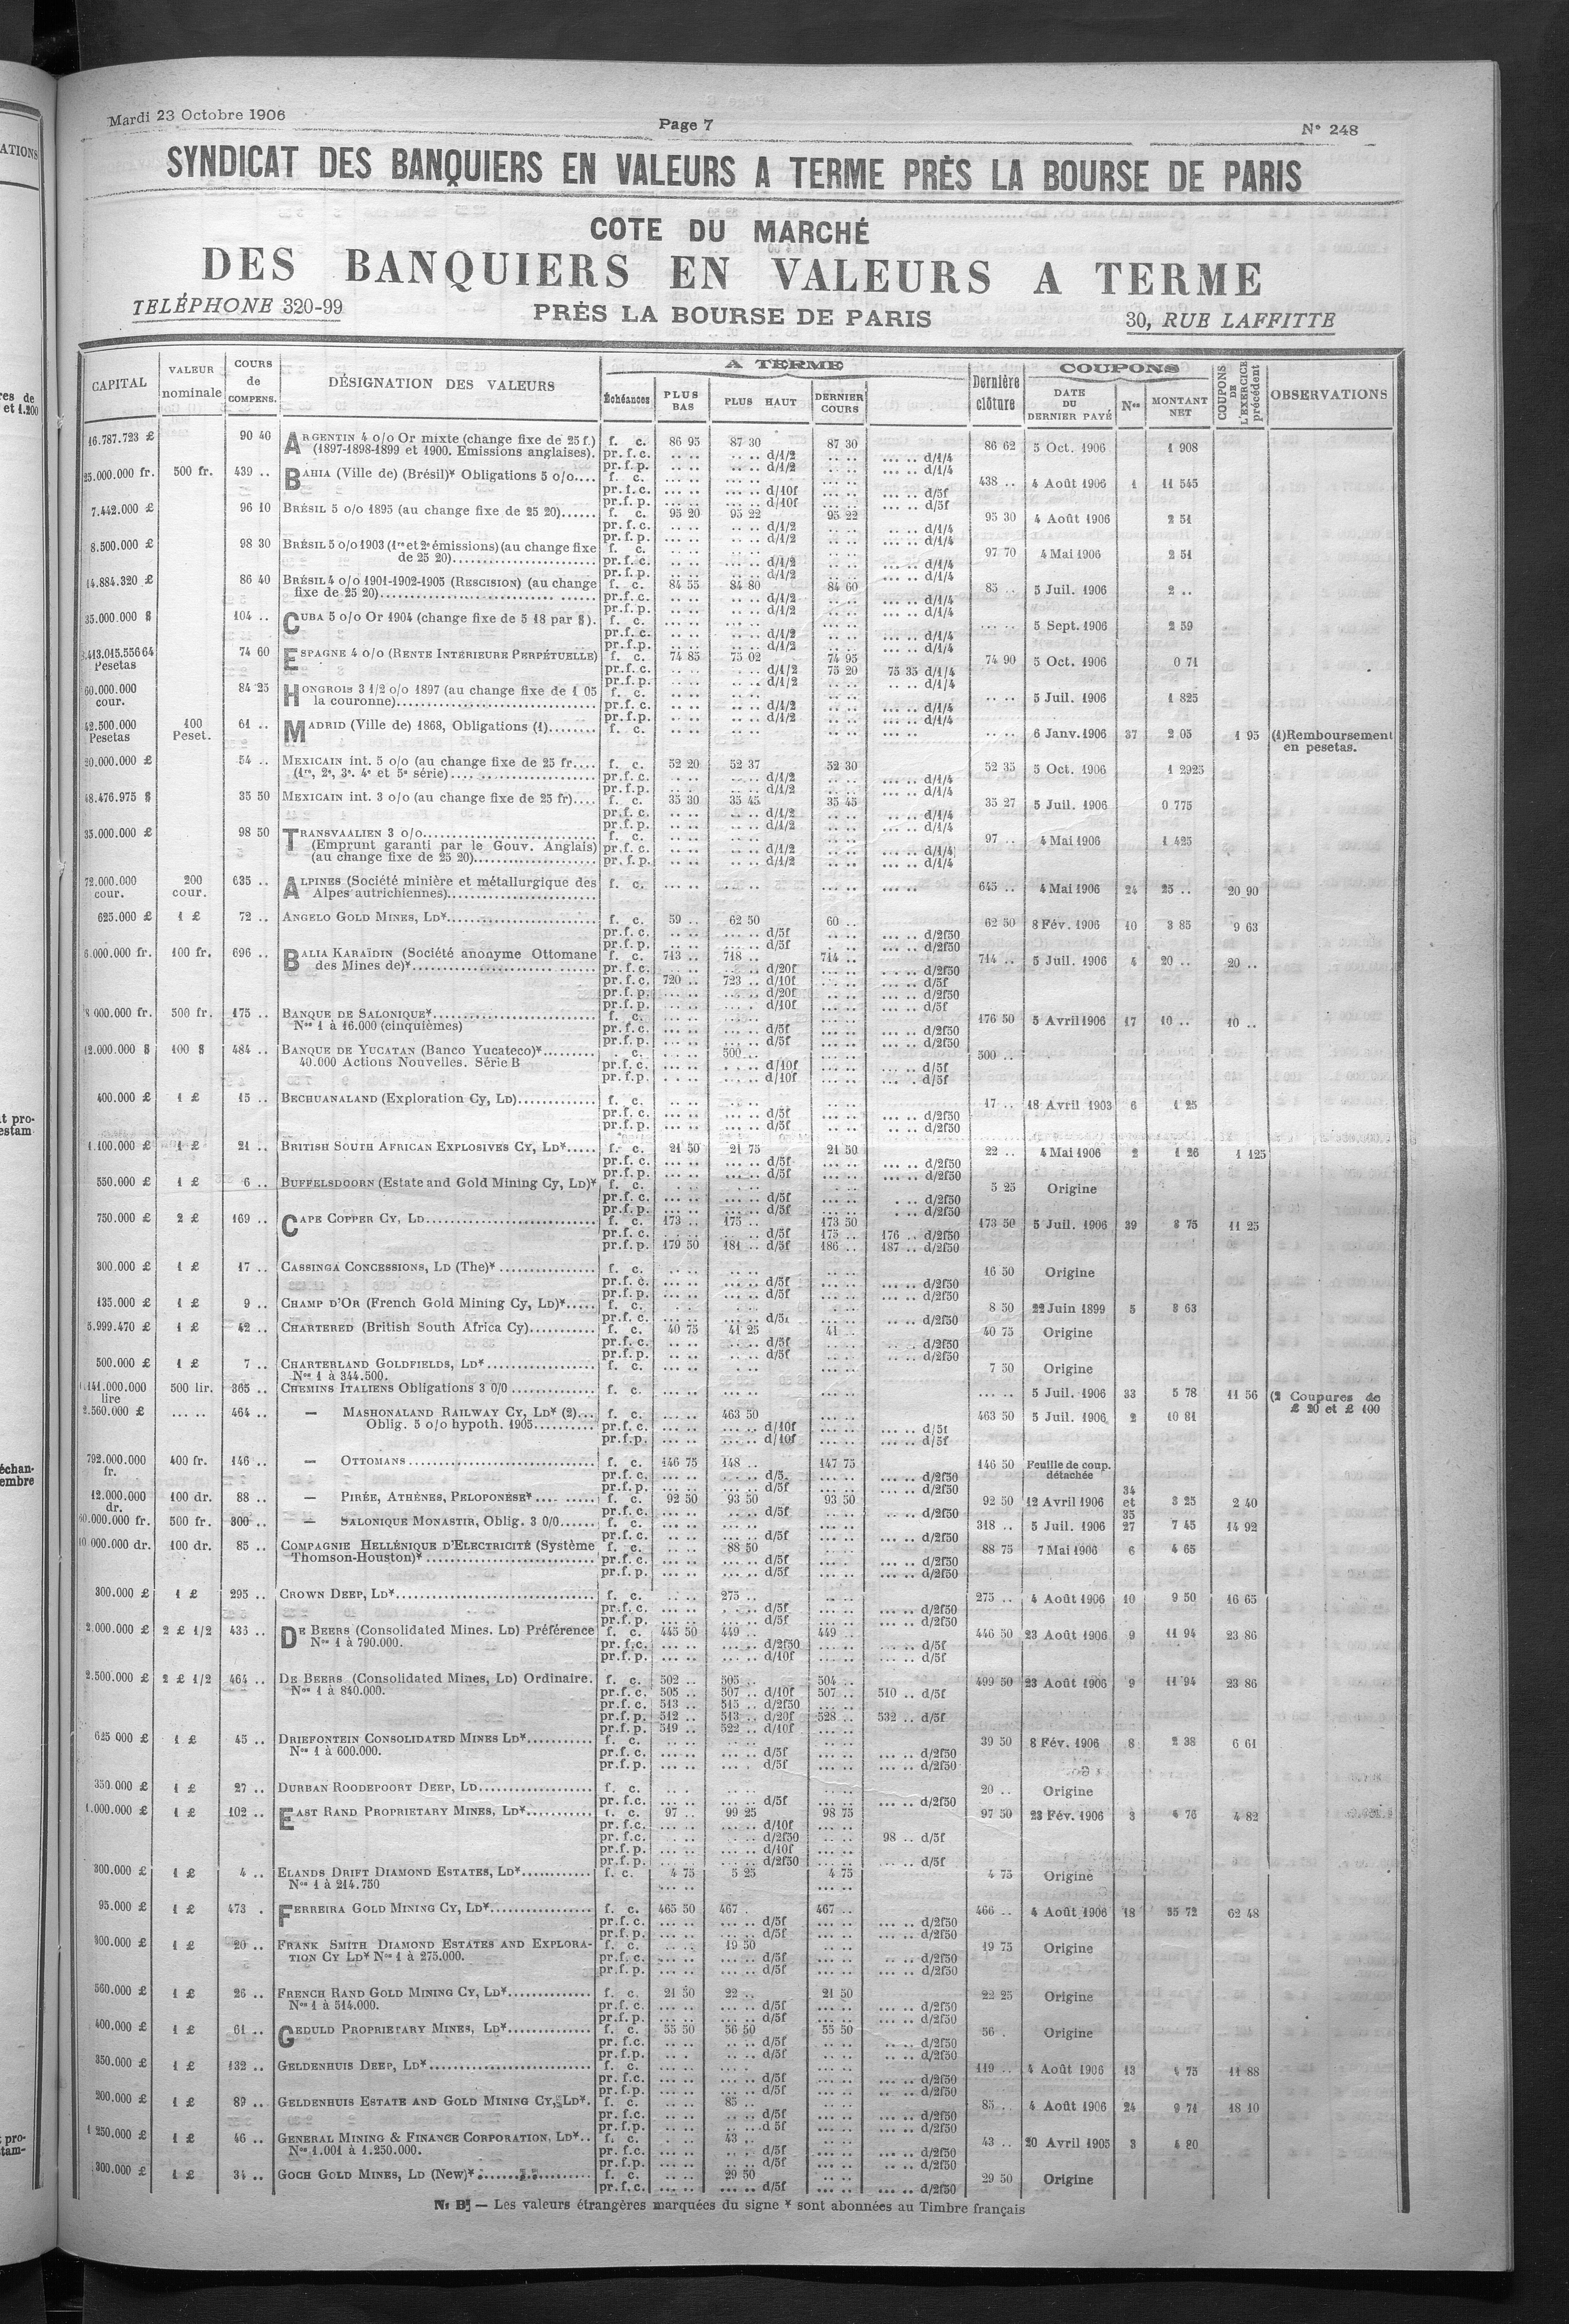 Mardi 23 Octobre 1906
Page 7
N° 248
SYNDICAT DES BANQUIERS EN VALEURS A TERME PRÈS LA BOURSE DE PARIS
COTE DU MARCHÉ
DES BANQUIERS EN VALEURS A TERME
TELÉPHONE 320-99
PRÈS LA BOURSE DE PARIS
30, RUE LAFFITTE
CAPITAL VALEUR nominale COURS de COMPENS. DÉSIGNATION DES VALEURS A TERME Échéances PLUS BAS PLUS HAUT DERNIER COURS Dernière clôture COUPONS DATE DU DERNIER PAYÉ Nos MONTANT NET COUPONS DE L'EXERCICE précédent OBSERVATIONS
16.787.723 £ 90 40 ARGENTIN 4 o/o Or mixte (change fixe de 25 f.) f. c. 86 95 87 30 87 30 86 62 5 Oct. 1906 1 908
(1897-1898-1899 et 1900. Emissions anglaises). pr. f. c. .. .. .. .. d/1/2 .. .. ... .. d/1/4
pr. f. p. .. .. .. .. d/1/2 .. .. ... .. d/1/4
25.000.000 fr. 500 fr. 439 .. BAHIA (Ville de) (Brésil)* Obligations 5 o/o.... f. c. 438 .. 4 Août 1906 1 11 545
pr. f. c. ... .. ... .. d/10f ... .. ... .. d/5f
pr. f. p. ... .. ... .. d/10f ... .. ... .. d/5f
7.442.000 £ 96 10 BRÉSIL 5 o/o 1895 (au change fixe de 25 20)...... f. c. 95 20 95 22 95 22 95 30 4 Août 1906 2 51
pr. f. c. .. .. .. .. d/1/2 .. .. ... .. d/1/4
pr. f. p. .. .. .. .. d/1/2 .. .. ... .. d/1/4
8.500.000 £ 98 30 BRÉSIL 5 o/o 1903 (1re et 2e émissions) (au change fixe f. c. 97 70 4 Mai 1906 2 51
de 25 20)........ pr. f. c. .. .. .. .. d/1/2 .. .. ... .. d/1/4
pr. f. p. .. .. .. .. d/1/2 .. .. ... .. d/1/4
14.884.320 £ 86 40 BRÉSIL 4 o/o 1901-1902-1905 (RESCISION) (au change f. c. 84 55 84 80 84 60 85 .. 5 Juil. 1906 2 ..
fixe de 25 20)........ pr. f. c. .. .. .. .. d/1/2 .. .. ... .. d/1/4
pr. f. p. .. .. .. .. d/1/2 .. .. ... .. d/1/4
35.000.000 $ 104 .. CUBA 5 o/o Or 1904 (change fixe de 5 18 par $). f. c. ... .. 5 Sept. 1906 2 59
pr. f. c. .. .. .. .. d/1/2 .. .. ... .. d/1/4
pr. f. p. .. .. .. .. d/1/2 .. .. ... .. d/1/4
.413.015.556 64 Pesetas 74 60 ESPAGNE 4 o/o (RENTE INTÉRIEURE PERPÉTUELLE) f. c. 74 85 75 02 74 95 74 90 5 Oct. 1906 0 71
pr. f. c. .. .. .. .. d/1/2 75 20 75 35 d/1/4
pr. f. p. .. .. .. .. d/1/2 .. .. .. .. d/1/4
60.000.000 cour. 84 25 HONGROIS 3 1/2 o/o 1897 (au change fixe de 1 05 f. c. .. .. 5 Juil. 1906 1 825
la couronne)........ pr. f. c. .. .. .. .. d/1/2 .. .. ... .. d/1/4
pr. f. p. .. .. .. .. d/1/2 .. .. ... .. d/1/4
42.500.000 Pesetas 100 Peset. 61 .. MADRID (Ville de) 1868, Obligations (1)........ f. c. .. .. 6 Janv. 1906 37 2 05 1 95 (1) Remboursement
en pesetas.
20.000.000 £ 54 .. MEXICAIN int. 5 o/o (au change fixe de 25 fr.... f. c. 52 20 52 37 52 30 52 35 5 Oct. 1906 1 2925
(1re, 2e, 3e, 4e et 5e série)........ pr. f. c. .. .. .. .. d/1/2 .. .. ... .. d/1/4
pr. f. p. .. .. .. .. d/1/2 .. .. ... .. d/1/4
48.476.975 $ 35 50 MEXICAIN int. 3 o/o (au change fixe de 25 fr).... f. c. 35 30 35 45 35 45 35 27 5 Juil. 1906 0 775
pr. f. c. .. .. .. .. d/1/2 .. .. ... .. d/1/4
pr. f. p. .. .. .. .. d/1/2 .. .. ... .. d/1/4
35.000.000 £ 98 50 TRANSVAALIEN 3 o/o........ f. c. 97 .. 4 Mai 1906 1 425
(Emprunt garanti par le Gouv. Anglais) pr. f. c. .. .. .. .. d/1/2 .. .. ... .. d/1/4
(au change fixe de 25 20)........ pr. f. p. .. .. .. .. d/1/2 .. .. ... .. d/1/4
72.000.000 cour. 200 cour. 635 .. ALPINES (Société minière et métallurgique des f. c. ... .. ... .. 645 .. 4 Mai 1906 24 25 .. 20 90
Alpes autrichiennes)........
625.000 £ 1 £ 72 .. ANGELO GOLD MINES, LD*........ f. c. 59 .. 62 50 60 .. 62 50 8 Fév. 1906 10 3 85 9 63
pr. f. c. .. .. ... .. d/5f .. .. ... .. d/2f50
pr. f. p. .. .. ... .. d/5f .. .. ... .. d/2f50
6.000.000 fr. 100 fr. 696 .. BALIA KARAÏDIN (Société anonyme Ottomane f. c. 713 .. 718 .. 714 .. 714 .. 5 Juil. 1906 4 20 .. 20 ..
des Mines de)*........ pr. f. c. ... .. ... .. d/20f ... .. ... .. d/2f50
pr. f. c. 720 .. 723 .. d/10f ... .. ... .. d/5f
pr. f. p. ... .. ... .. d/20f ... .. ... .. d/2f50
pr. f. p. ... .. ... .. d/10f ... .. ... .. d/5f
8.000.000 fr. 500 fr. 175 .. BANQUE DE SALONIQUE*........ f. c. 176 50 5 Avril 1906 17 10 .. 10 ..
Nos 1 à 16.000 (cinquièmes) pr. f. c. ... .. ... .. d/5f ... .. ... .. d/2f50
pr. f. p. ... .. ... .. d/5f ... .. ... .. d/2f50
12.000.000 $ 100 $ 484 .. BANQUE DE YUCATAN (Banco Yucateco)*........ . c. 500 .. 500 ..
40.000 Actions Nouvelles. Série B pr. f. c. ... .. ... .. d/10f ... .. ... .. d/5f
pr. f. p. ... .. ... .. d/10f ... .. ... .. d/5f
400.000 £ 1 £ 15 .. BECHUANALAND (Exploration Cy, LD)........ f. c. 17 .. 18 Avril 1903 6 1 25
pr. f. c. ... .. ... .. d/5f ... .. ... .. d/2f50
pr. f. p. ... .. ... .. d/5f ... .. ... .. d/2f50
1.100.000 £ 1 £ 21 .. BRITISH SOUTH AFRICAN EXPLOSIVES CY, LD*..... f. c. 21 50 21 75 21 50 22 .. 4 Mai 1906 2 1 26 1 125
pr. f. c. ... .. ... .. d/5f ... .. ... .. d/2f50
pr. f. p. ... .. ... .. d/5f ... .. ... .. d/2f50
550.000 £ 1 £ 6 .. BUFFELSDOORN (Estate and Gold Mining Cy, LD)* f. c. 5 25 Origine
pr. f. c. ... .. ... .. d/5f ... .. ... .. d/2f50
pr. f. p. ... .. ... .. d/5f ... .. ... .. d/2f50
750.000 £ 2 £ 169 .. CAPE COPPER CY, LD........ f. c. 173 .. 175 .. 173 50 173 50 5 Juil. 1906 39 3 75 11 25
pr. f. c. ... .. ... .. d/5f 175 .. 176 .. d/2f50
pr. f. p. 179 50 181 .. d/5f 186 .. 187 .. d/2f50
300.000 £ 1 £ 17 .. CASSINGA CONCESSIONS, LD (The)*........ f. c. 16 50 Origine
pr. f. c. ... .. ... .. d/5f ... .. ... .. d/2f50
pr. f. p. ... .. ... .. d/5f ... .. ... .. d/2f50
135.000 £ 1 £ 9 .. CHAMP D'OR (French Gold Mining Cy, LD)*..... f. c. 8 50 22 Juin 1899 5 3 63
pr. f. c. ... .. ... .. d/5f ... .. ... .. d/2f50
5.999.470 £ 1 £ 42 .. CHARTERED (British South Africa Cy)........ f. c. 40 75 41 25 41 .. 40 75 Origine
pr. f. c. ... .. ... .. d/5f ... .. ... .. d/2f50
pr. f. p. ... .. ... .. d/5f ... .. ... .. d/2f50
500.000 £ 1 £ 7 .. CHARTERLAND GOLDFIELDS, LD*........ f. c. ... .. ... .. 7 50 Origine
Nos 1 à 344.500.
.141.000.000 lire 500 lir. 365 .. CHEMINS ITALIENS Obligations 3 0/0........ f. c. ... .. ... .. ... .. 5 Juil. 1906 33 5 78 11 56 (2 Coupures de
£ 20 et £ 100
2.560.000 £ ... .. 464 .. — MASHONALAND RAILWAY CY, LD* (2)... f. c. ... .. 463 50 ... .. 463 50 5 Juil. 1906 2 10 81
Oblig. 5 o/o hypoth. 1905........ pr. f. c. ... .. ... .. d/10f ... .. ... .. d/5f
pr. f. p. ... .. ... .. d/10f ... .. ... .. d/5f
792.000.000 fr. 400 fr. 146 .. — OTTOMANS........ f. c. 146 75 148 .. 147 75 146 50 Feuille de coup.
détachée
pr. f. c. ... .. ... .. d/5. ... .. ... .. d/2f50
pr. f. p. ... .. ... .. d/5f ... .. ... .. d/2f50
12.000.000 dr. 100 dr. 88 .. — PIRÉE, ATHÈNES, PELOPONÈSE*........ f. c. 92 50 93 50 93 50 92 50 12 Avril 1906 34 et 35 3 25 2 40
pr. f. c. ... .. ... .. d/5f ... .. ... .. d/2f50
60.000.000 fr. 500 fr. 300 .. — SALONIQUE MONASTIR, Oblig. 3 0/0...... f. c. 318 .. 5 Juil. 1906 27 7 45 14 92
pr. f. c. ... .. ... .. d/5f ... .. ... .. d/2f50
10.000.000 dr. 100 dr. 85 .. COMPAGNIE HELLÉNIQUE D'ELECTRICITÉ (Système f. c. 88 50 88 75 7 Mai 1906 6 4 65
Thomson-Houston)*........ pr. f. c. ... .. ... .. d/5f ... .. ... .. d/2f50
pr. f. p. ... .. ... .. d/5f ... .. ... .. d/2f50
300.000 £ 1 £ 295 .. CROWN DEEP, LD*........ f. c. 275 .. 275 .. 4 Août 1906 10 9 50 16 65
pr. f. c. ... .. ... .. d/5f ... .. ... .. d/2f50
pr. f. p. ... .. ... .. d/5f ... .. ... .. d/2f50
2.000.000 £ 2 £ 1/2 433 .. DE BEERS (Consolidated Mines. LD) Préférence f. c. 445 50 449 .. 449 .. 446 50 23 Août 1906 9 11 94 23 86
Nos 1 à 790.000. pr. f. c. ... .. ... .. d/2f50 ... .. ... .. d/5f
pr. f. p. ... .. ... .. d/10f ... .. ... .. d/5f
2.500.000 £ 2 £ 1/2 464 .. DE BEERS (Consolidated Mines, LD) Ordinaire. f. c. 502 .. 505 .. 504 .. 499 50 23 Août 1906 9 11 94 23 86
Nos 1 à 840.000. pr. f. c. 505 .. 507 .. d/10f 507 .. 510 .. d/5f
pr. f. c. 513 .. 515 .. d/2f50 ... ..
pr. f. p. 512 .. 513 .. d/20f 528 .. 532 .. d/5f
pr. f. p. 519 .. 522 .. d/10f ... ..
625 000 £ 1 £ 45 .. DRIEFONTEIN CONSOLIDATED MINES LD*........ f. c. 39 50 8 Fév. 1906 8 2 38 6 61
Nos 1 à 600.000. pr. f. c. ... .. ... .. d/5f ... .. ... .. d/2f50
pr. f. p. ... .. ... .. d/5f ... .. ... .. d/2f50
350.000 £ 1 £ 27 .. DURBAN ROODEPOORT DEEP, LD........ f. c. 20 .. Origine
pr. f. c. ... .. ... .. d/5f ... .. ... .. d/2f50
1.000.000 £ 1 £ 102 .. EAST RAND PROPRIETARY MINES, LD*........ f. c. 97 .. 99 25 98 75 97 50 23 Fév. 1906 3 4 76 4 82
pr. f. c. ... .. ... .. d/10f ... ..
pr. f. c. ... .. ... .. d/2f50 ... .. 98 .. d/5f
pr. f. p. ... .. ... .. d/10f ... ..
pr. f. p. ... .. ... .. d/2f50 ... .. ... .. d/5f
300.000 £ 1 £ 4 .. ELANDS DRIFT DIAMOND ESTATES, LD*........ f. c. 4 75 5 25 4 75 4 75 Origine
Nos 1 à 214.750
95.000 £ 1 £ 473 . FERREIRA GOLD MINING CY, LD*........ f. c. 465 50 467 . 467 .. 466 .. 4 Août 1906 18 35 72 62 48
pr. f. c. ... .. ... .. d/5f ... .. ... .. d/2f50
pr. f. p. ... .. ... .. d/5f ... .. ... .. d/2f50
300.000 £ 1 £ 20 .. FRANK SMITH DIAMOND ESTATES AND EXPLORA- f. c. 19 50 19 75 Origine
TION CY LD* Nos 1 à 275.000. pr. f. c. ... .. ... .. d/5f ... .. ... .. d/2f50
pr. f. p. ... .. ... .. d/5f ... .. ... .. d/2f50
560.000 £ 1 £ 26 .. FRENCH RAND GOLD MINING CY, LD*........ f. c. 21 50 22 .. 21 50 22 25 Origine
Nos 1 à 514.000. pr. f. c. ... .. ... .. d/5f ... .. ... .. d/2f50
pr. f. p. ... .. ... .. d/5f ... .. ... .. d/2f50
400.000 £ 1 £ 61 .. GEDULD PROPRIETARY MINES, LD*........ f. c. 55 50 56 50 55 50 56 . Origine
pr. f. c. ... .. ... .. d/5f ... .. ... .. d/2f50
pr. f. p. ... .. ... .. d/5f ... .. ... .. d/2f50
350.000 £ 1 £ 132 .. GELDENHUIS DEEP, LD*........ f. c. 119 .. 4 Août 1906 13 4 75 11 88
pr. f. c. ... .. ... .. d/5f ... .. ... .. d/2f50
pr. f. p. ... .. ... .. d/5f ... .. ... .. d/2f50
200.000 £ 1 £ 89 .. GELDENHUIS ESTATE AND GOLD MINING CY, LD*. f. c. 85 .. 85 .. 4 Août 1906 24 9 71 18 10
pr. f. c. ... .. ... .. d/5f ... .. ... .. d/2f50
pr. f. p. ... .. ... .. d 5f ... .. ... .. d/2f50
1 250.000 £ 1 £ 46 .. GENERAL MINING & FINANCE CORPORATION, LD*.. f. c. 43 .. 43 .. 20 Avril 1905 3 4 80
Nos 1.001 à 1.250.000. pr. f. c. ... .. ... .. d/5f ... .. ... .. d/2f50
pr. f. p. ... .. ... .. d/5f ... .. ... .. d/2f50
300.000 £ 1 £ 34 .. GOCH GOLD MINES, LD (New)*........ f. c. 29 50 29 50 Origine
pr. f. c. ... .. ... .. d/5f ... .. ... .. d/2f50
N. B. — Les valeurs étrangères marquées du signe * sont abonnées au Timbre français